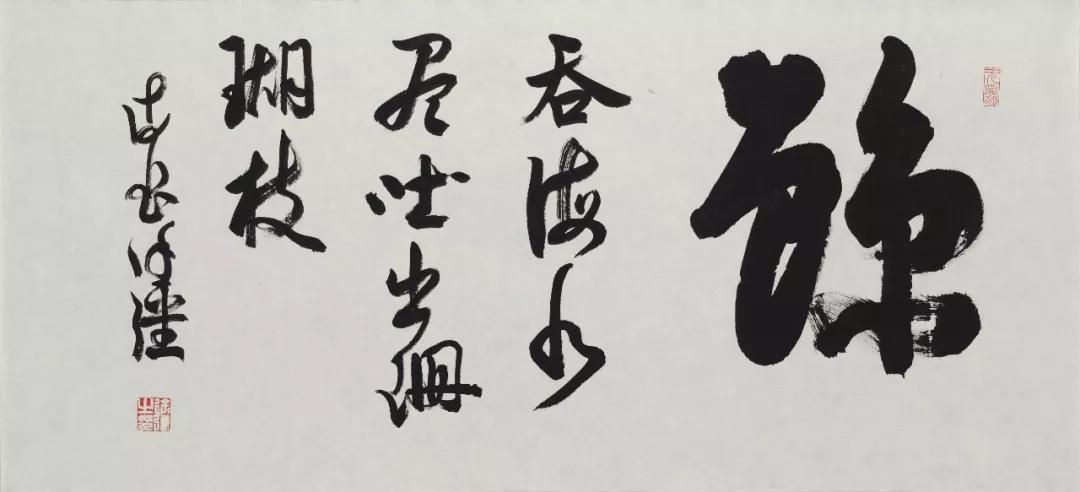 鲸
吞海水
尽吐出珊
瑚枝